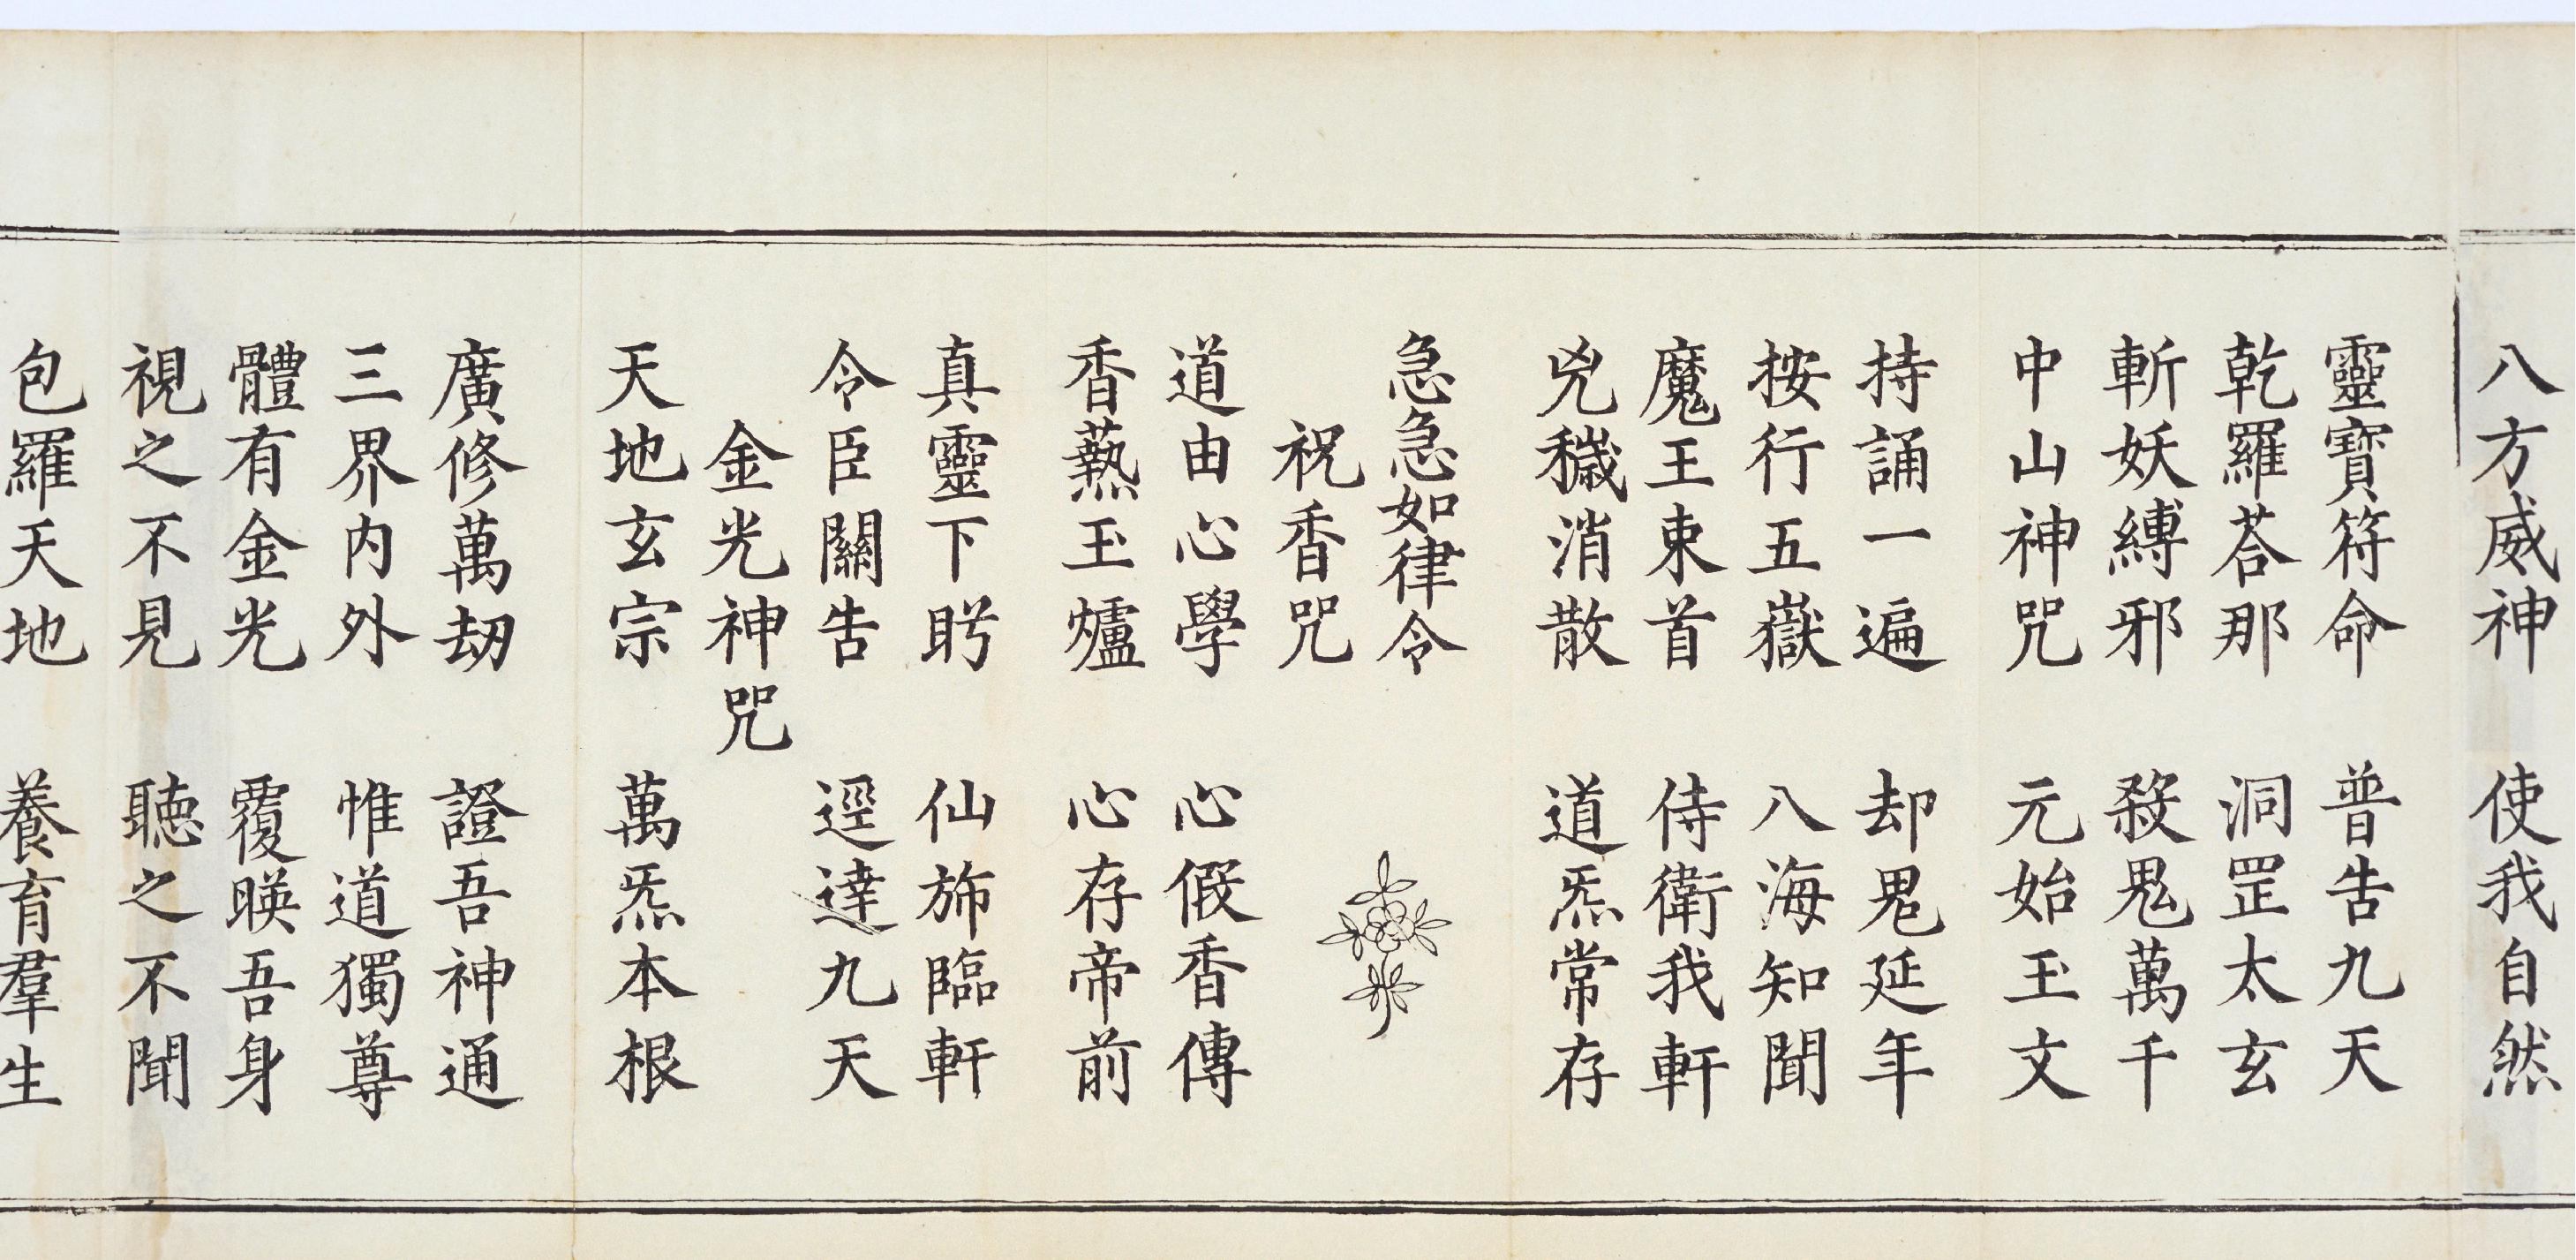 八方威神　使我自然
靈寶符命　普告九天
乾羅荅那　洞罡太玄
斬妖縛邪　殺鬼萬千
中山神咒　元始玉文
持誦一遍　却鬼延年
按行五嶽　八海知聞
魔王束首　侍衛我軒
兇穢消散　道炁常存
急急如律令
祝香咒
道由心學　心假香傳
香爇玉爐　心存帝前
真靈下盻　仙旆臨軒
令臣關告　逕達九天
金光神咒
天地玄宗　萬炁本根
廣修萬劫　證吾神通
三界內外　惟道獨尊
體有金光　覆暎吾身
視之不見　聽之不聞
包羅天地　養育羣生